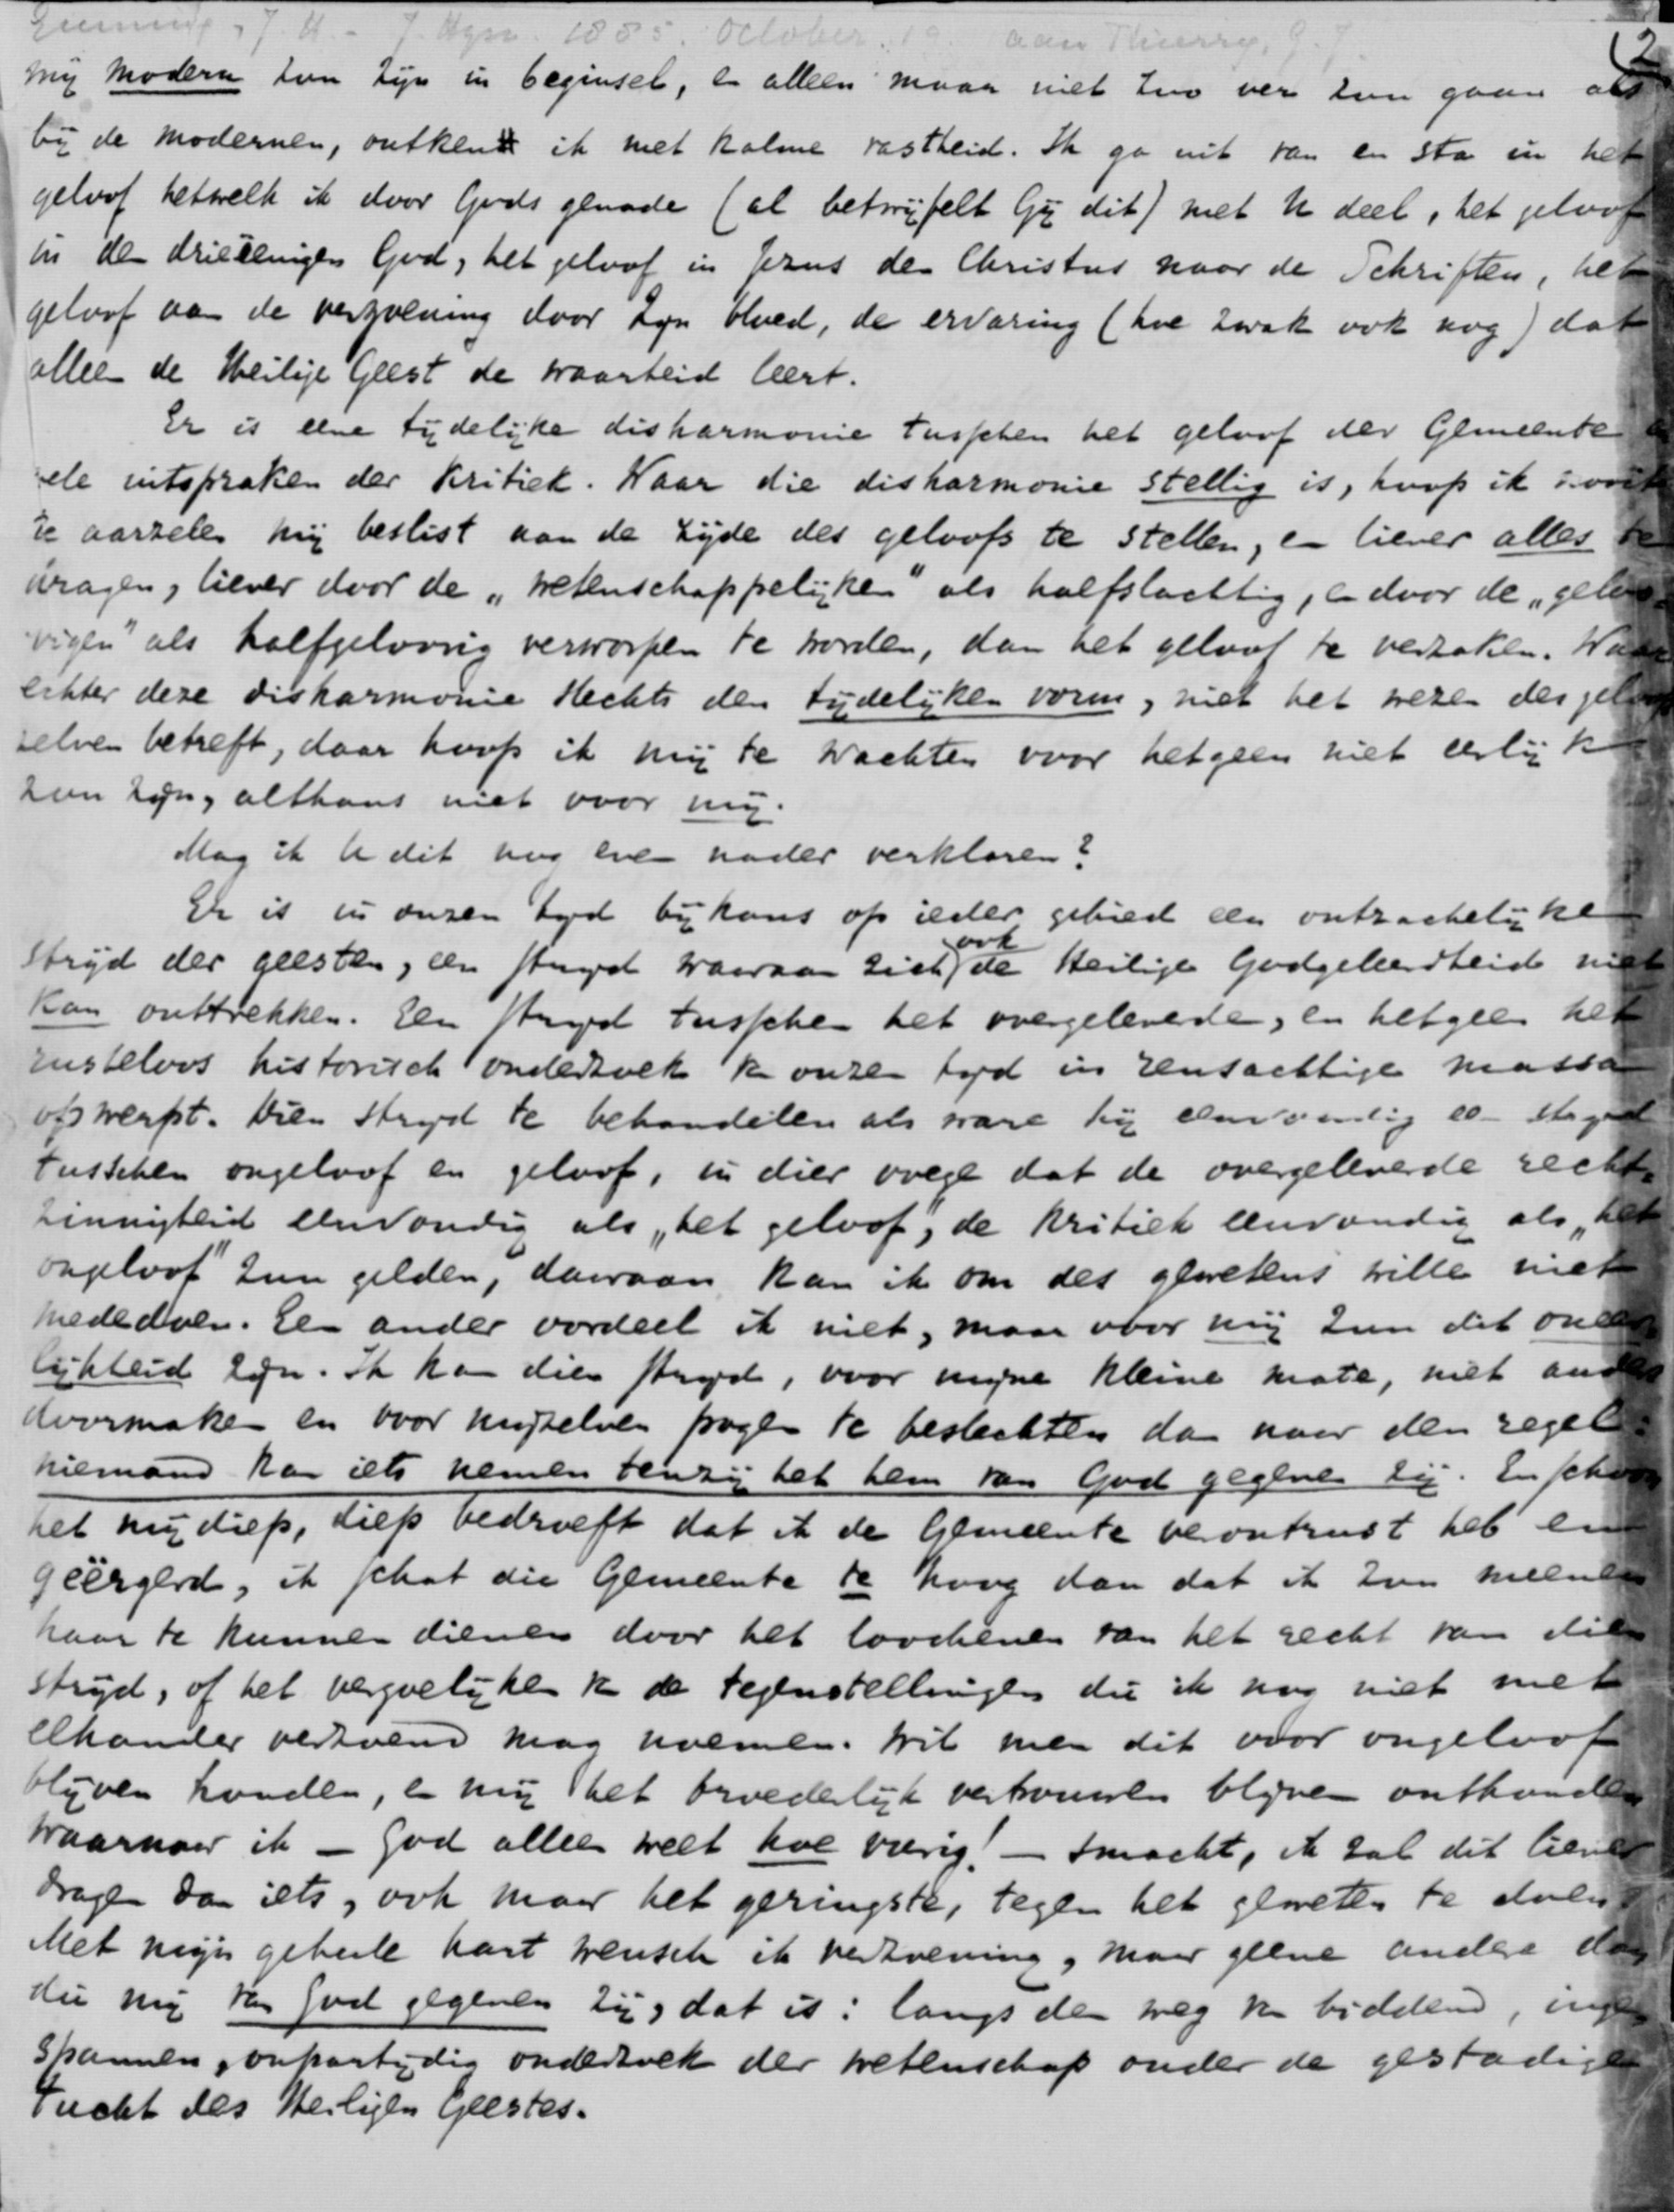 Gunning, J. H. - J. Hzn. 1885. October. 19 aan Thierry, G. J.
2
mij modern zou zijn in beginsel, en alleen maar niet zoo ver zou gaan als
bij de modernen, ontken ik met kalme vastheid. Ik ga uit van en sta in het
geloof hetwelk ik door Gods genade (al betwijfelt Gij dit) met U deel, het geloof
in den drieëenigen God, het geloof in Jezus den Christus naar de Schriften, het
geloof aan de verzoening door Zijn bloed, de ervaring (hoe zwak ook nog) dat
alleen de Heilige Geest de waarheid leert.
Er is eene tijdelijke disharmonie tusschen het geloof der Gemeente en
vele uitspraken der kritiek. Waar die disharmonie stellig is, hoop ik nooit
te aarzelen mij beslist aan de zijde des geloofs te stellen, en liever alles te
dragen, liever door de „wetenschappelijken" als halfslachtig, en door de „geloo-
vigen" als halfgeloovig verworpen te worden, dan het geloof te verzaken. Waar
echter deze disharmonie slechts den tijdelijken vorm, niet het wezen des geloofs
zelven betreft, daar hoop ik mij te wachten voor hetgeen niet eerlijk
zou zijn, althans niet voor mij.
Mag ik U dit nog even nader verklaren?
Er is in onzen tijd bijkans op ieder gebied een ontzachelijke
strijd der geesten, een strijd waaraan zich ook de Heilige Godgeleerdheid niet
kan onttrekken. Een strijd tusschen het overgeleverde, en hetgeen het
rusteloos historisch onderzoek v. onzen tijd in reusachtige massa
opwerpt. Dien strijd te behandelen als ware hij eenvoudig een strijd
tusschen ongeloof en geloof, in dier voege dat de overgeleverde recht-
zinnigheid eenvoudig als „het geloof", de kritiek eenvoudig als „het
ongeloof" zou gelden, daaraan kan ik om des gewetens wille niet
mededoen. Een ander oordeel ik niet, maar voor mij zou dit oneer-
lijkheid zijn. Ik kan dien strijd, voor mijne kleine mate, niet anders
doormaken en voor mijzelven pogen te beslechten dan naar den regel:
niemand kan iets nemen tenzij het hem van God gegeven zij. En schoon
het mij diep, diep bedroeft dat ik de Gemeente verontrust heb en
geërgerd, ik schat die Gemeente te hoog dan dat ik zou meenen
haar te kunnen dienen door het loochenen van het recht van dien
strijd, of het vergoelijken v. de tegenstellingen die ik nog niet met
elkander verzoend mag noemen. Wil men dit voor ongeloof
blijven houden, en mij het broederlijk vertrouwen blijven onthouden
waarnaar ik — God alleen weet hoe vurig! — smacht, ik zal dit liever
dragen dan iets, ook maar het geringste, tegen het geweten te doen.
Met mijn geheele hart wensch ik verzoening, maar geene andere dan
die mij van God gegeven zij, dat is: langs den weg v. biddend, inge-
spannen, onpartijdig onderzoek der wetenschap onder de gestadige
tucht des Heiligen Geestes.